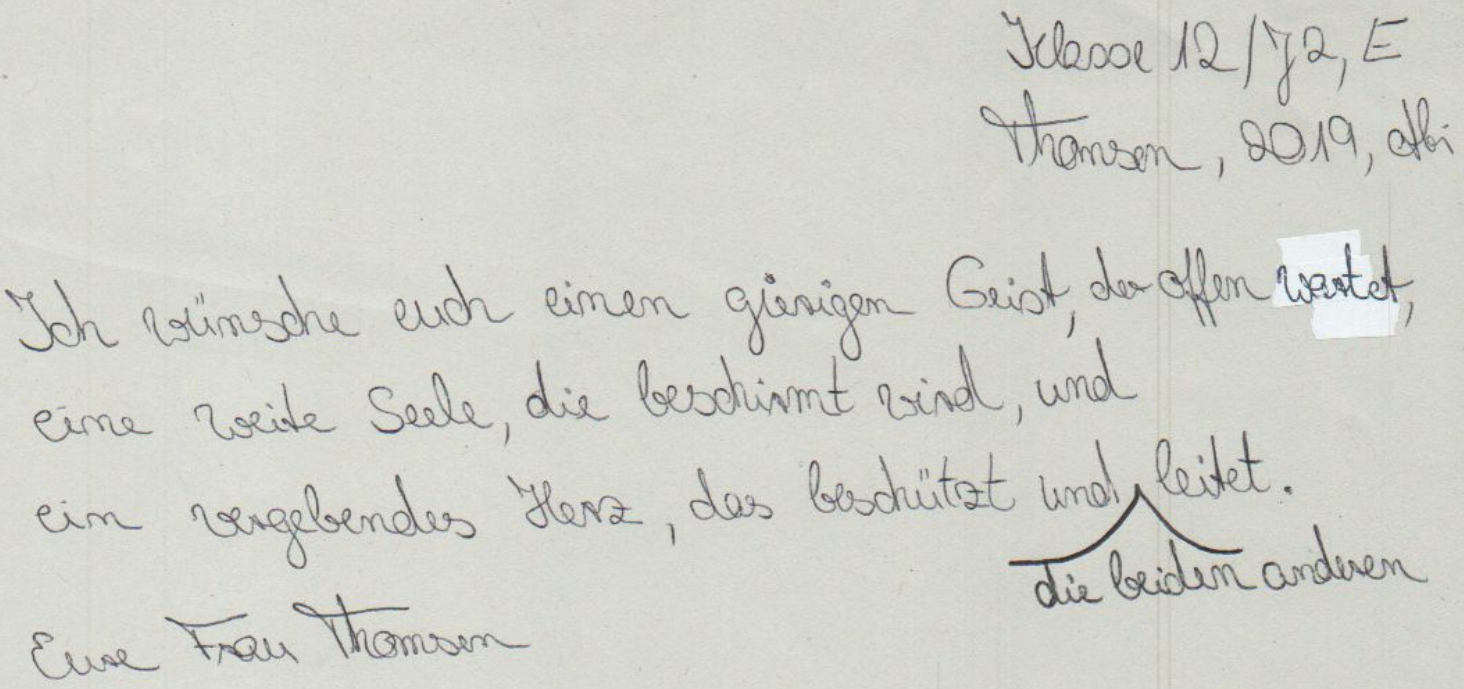 Klasse 12/J2, E
Thomsen, 2019, Abi
Ich wünsche euch einen gierigen Geist, der offen wartet,
eine weite Seele, die beschirmt wird, und
ein vergebendes Herz, das beschützt und leitet.
die beiden anderen
Eure Frau Thomsen